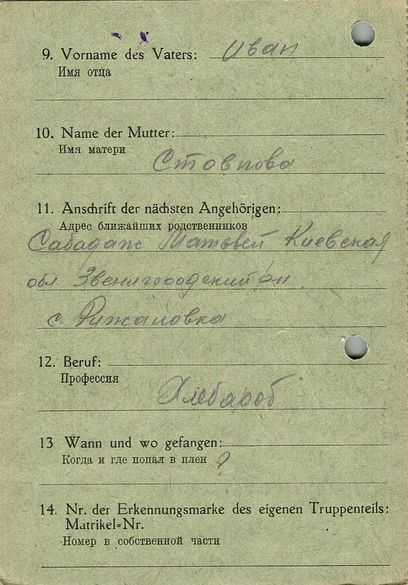 9. Vorname des Vaters: Иван
Имя отца
10. Name der Mutter:
Имя матери
Стовпова
11. Anschrift der nächsten Angehörigen:
Адрес ближайших родственников
Сабадаж Матвей Киевская
обл. Звенигородский
с. Рижановка
12. Beruf:
Профессия
Хлебароб
13 Wann und wo gefangen:
Когда и где попал в плен ?
14. Nr. der Erkennungsmarke des eigenen Truppenteils:
Matrikel=Nr.
Номер в собственной части